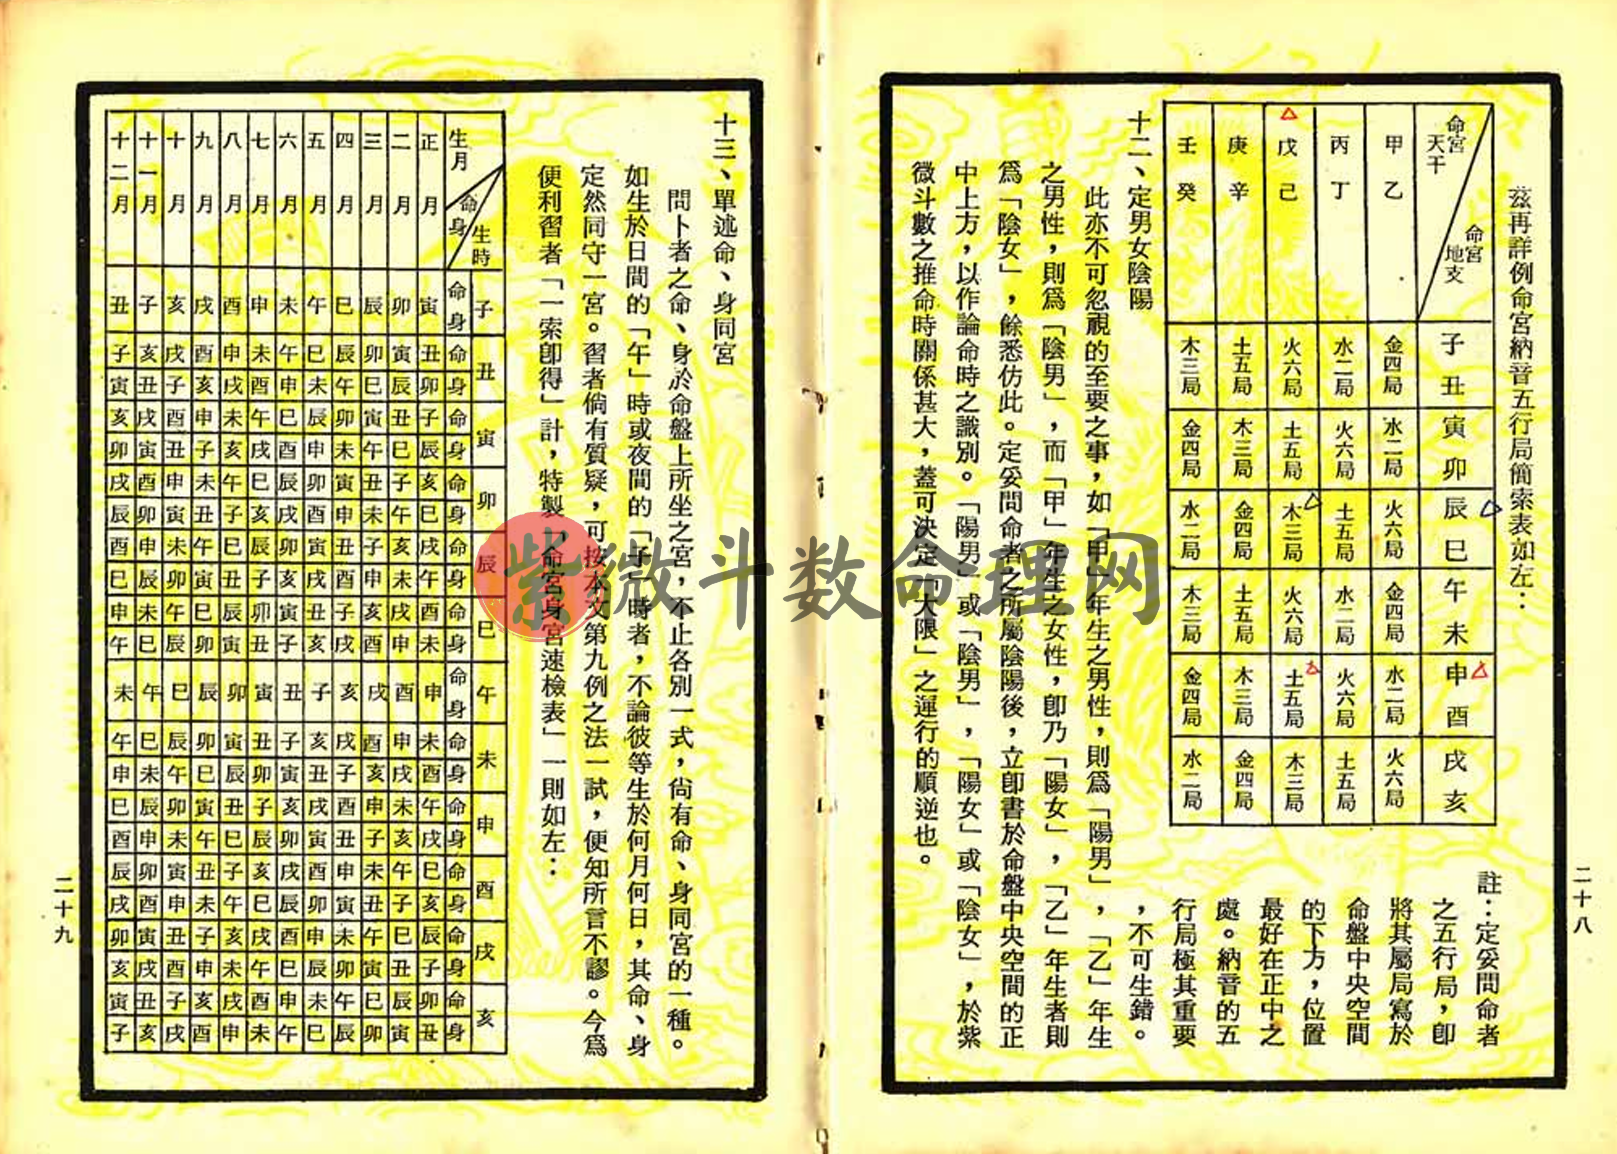 茲再詳例命宮納音五行局簡索表如左：
命宮天干　命宮地支　甲乙　丙丁　戊己　庚辛　壬癸
子丑　金四局　水二局　火六局　土五局　木三局
寅卯　水二局　火六局　土五局　木三局　金四局
辰巳　火六局　土五局　木三局　金四局　水二局
午未　金四局　水二局　火六局　土五局　木三局
申酉　水二局　火六局　土五局　木三局　金四局
戌亥　火六局　土五局　木三局　金四局　水二局
註：定妥問命者
之五行局，卽
將其屬局寫於
命盤中央空間
的下方，位置
最好在正中之
處。納音的五
行局極其重要
，不可生錯。
十二、定男女陰陽
此亦不可忽視的至要之事，如「甲」年生之男性，則爲「陽男」，「乙」年生
之男性，則爲「陰男」，而「甲」年生之女性，卽乃「陽女」，「乙」年生者則
爲「陰女」，餘悉仿此。定妥問命者之所屬陰陽後，立卽書於命盤中央空間的正
中上方，以作論命時之識別。「陽男」或「陰男」，「陽女」或「陰女」，於紫
微斗數之推命時關係甚大，蓋可決定「大限」之運行的順逆也。
二十八
十三、單述命、身同宮
問卜者之命、身於命盤上所坐之宮，不止各別一式，尙有命、身同宮的一種。
如生於日間的「午」時或夜間的「子」時者，不論彼等生於何月何日，其命、身
定然同守一宮。習者倘有質疑，可按本文第九例之法一試，便知所言不謬。今爲
便利習者「一索卽得」計，特製「命宮身宮速檢表」一則如左：
生月　命身　生時　正月　二月　三月　四月　五月　六月　七月　八月　九月　十月　十一月　十二月
子　命身　寅　卯　辰　巳　午　未　申　酉　戌　亥　子　丑
丑　命　丑　寅　卯　辰　巳　午　未　申　酉　戌　亥　子
身　卯　辰　巳　午　未　申　酉　戌　亥　子　丑　寅
寅　命　子　丑　寅　卯　辰　巳　午　未　申　酉　戌　亥
身　辰　巳　午　未　申　酉　戌　亥　子　丑　寅　卯
卯　命　亥　子　丑　寅　卯　辰　巳　午　未　申　酉　戌
身　巳　午　未　申　酉　戌　亥　子　丑　寅　卯　辰
辰　命　戌　亥　子　丑　寅　卯　辰　巳　午　未　申　酉
身　午　未　申　酉　戌　亥　子　丑　寅　卯　辰　巳
巳　命　酉　戌　亥　子　丑　寅　卯　辰　巳　午　未　申
身　未　申　酉　戌　亥　子　丑　寅　卯　辰　巳　午
午　命身　申　酉　戌　亥　子　丑　寅　卯　辰　巳　午　未
未　命　未　申　酉　戌　亥　子　丑　寅　卯　辰　巳　午
身　酉　戌　亥　子　丑　寅　卯　辰　巳　午　未　申
申　命　午　未　申　酉　戌　亥　子　丑　寅　卯　辰　巳
身　戌　亥　子　丑　寅　卯　辰　巳　午　未　申　酉
酉　命　巳　午　未　申　酉　戌　亥　子　丑　寅　卯　辰
身　亥　子　丑　寅　卯　辰　巳　午　未　申　酉　戌
戌　命　辰　巳　午　未　申　酉　戌　亥　子　丑　寅　卯
身　子　丑　寅　卯　辰　巳　午　未　申　酉　戌　亥
亥　命　卯　辰　巳　午　未　申　酉　戌　亥　子　丑　寅
身　丑　寅　卯　辰　巳　午　未　申　酉　戌　亥　子
二十九
紫微斗数命理网